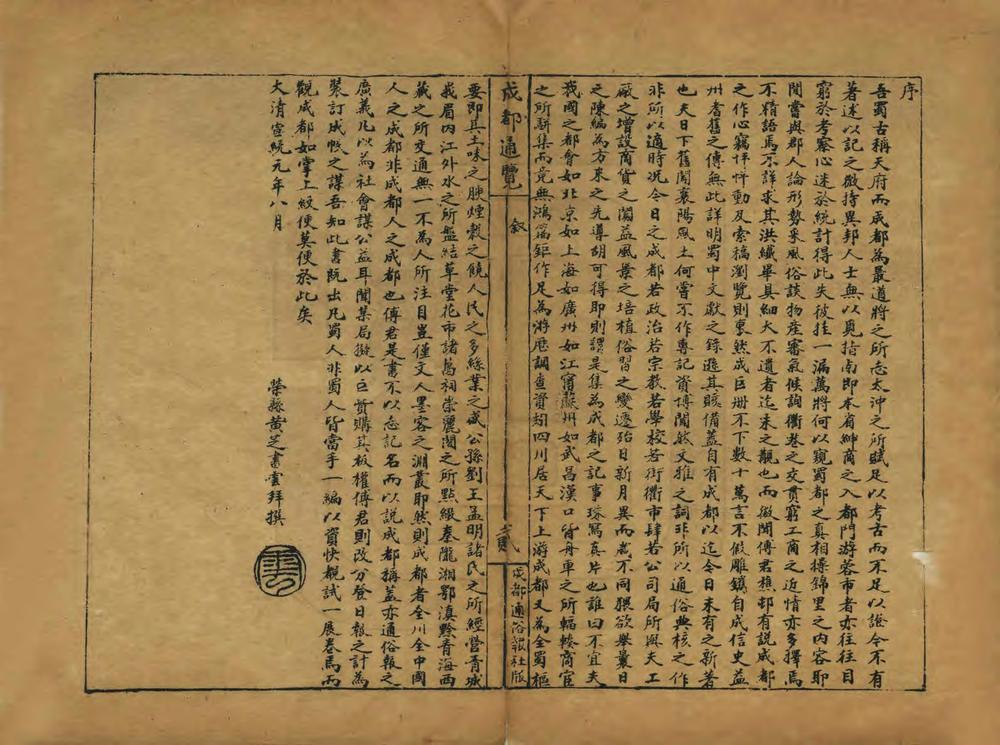 序
吾蜀古稱天府而成都為最道將之所志太沖之所賦足以考古而不足以證今不有
著述以記之微特異邦人士無以奠指南即本省紳商之入都門游蓉市者亦往往目
窮於考察心迷於統計得此失彼挂一漏萬將何以窺蜀都之真相操錦里之內容耶
聞嘗與郡人論形勢采風俗談物産審氣候詢衢巷之交貫窮工商之近情亦多擇焉
不精語焉不詳求其洪纖畢具細大不遺者迄未之覯也而微聞傅君樵邨有説成都
之作心竊怦怦動及索稿瀏覽則裒然成巨册不下數十萬言不假雕鐫自成信史益
州耆舊之傳無此詳明蜀中文獻之錄遜其賅備蓋自有成都以迄今日未有之新著
也夫日下舊聞襄陽風土何嘗不作專記資博聞然文雅之詞非所以通俗典核之作
非所以適時况今日之成都若政治若宗教若學校若街衢市肆若公司局所與夫工
廠之增設商貨之闐益風景之培植俗習之變遷殆日新月異而歲不同猥欲舉曩日
之陳編為方來之先導胡可得耶則謂是集為成都之記事珠寫真片也誰曰不宜夫
我國之都會如北京如上海如廣州如江甯蘇州如武昌漢口皆舟車之所輻輳商宦
之所駢集而竟無鴻篇鉅作足為游歷調查資矧四川居天下上游成都又為全蜀樞
成都通覽
敘
貳
成都通俗報社版
要即其土味之腴煙縠之饒人民之多絲業之盛公孫劉王孟明諸氏之所經營青城
峩眉內江外水之所盤結草堂花市諸葛祠崇麗閣之所點綴秦隴湘鄂滇黔青海西
藏之所交通無一不為人所注目豈僅文人墨客之淵叢耶然則成都者全川全中國
人之成都非成都人之成都也傅君是書不以志記名而以説成都稱蓋亦通俗報之
廣義凡以為社會謀公益耳聞某局擬以巨貲購其板權傅君則改分登日報之計為
裝訂成帙之謀吾知此書既出凡蜀人非蜀人皆當手一編以資快覩試一展卷焉而
觀成都如掌上紋便莫便於此矣
大清宣統元年八月
榮縣黃芝書雲拜撰